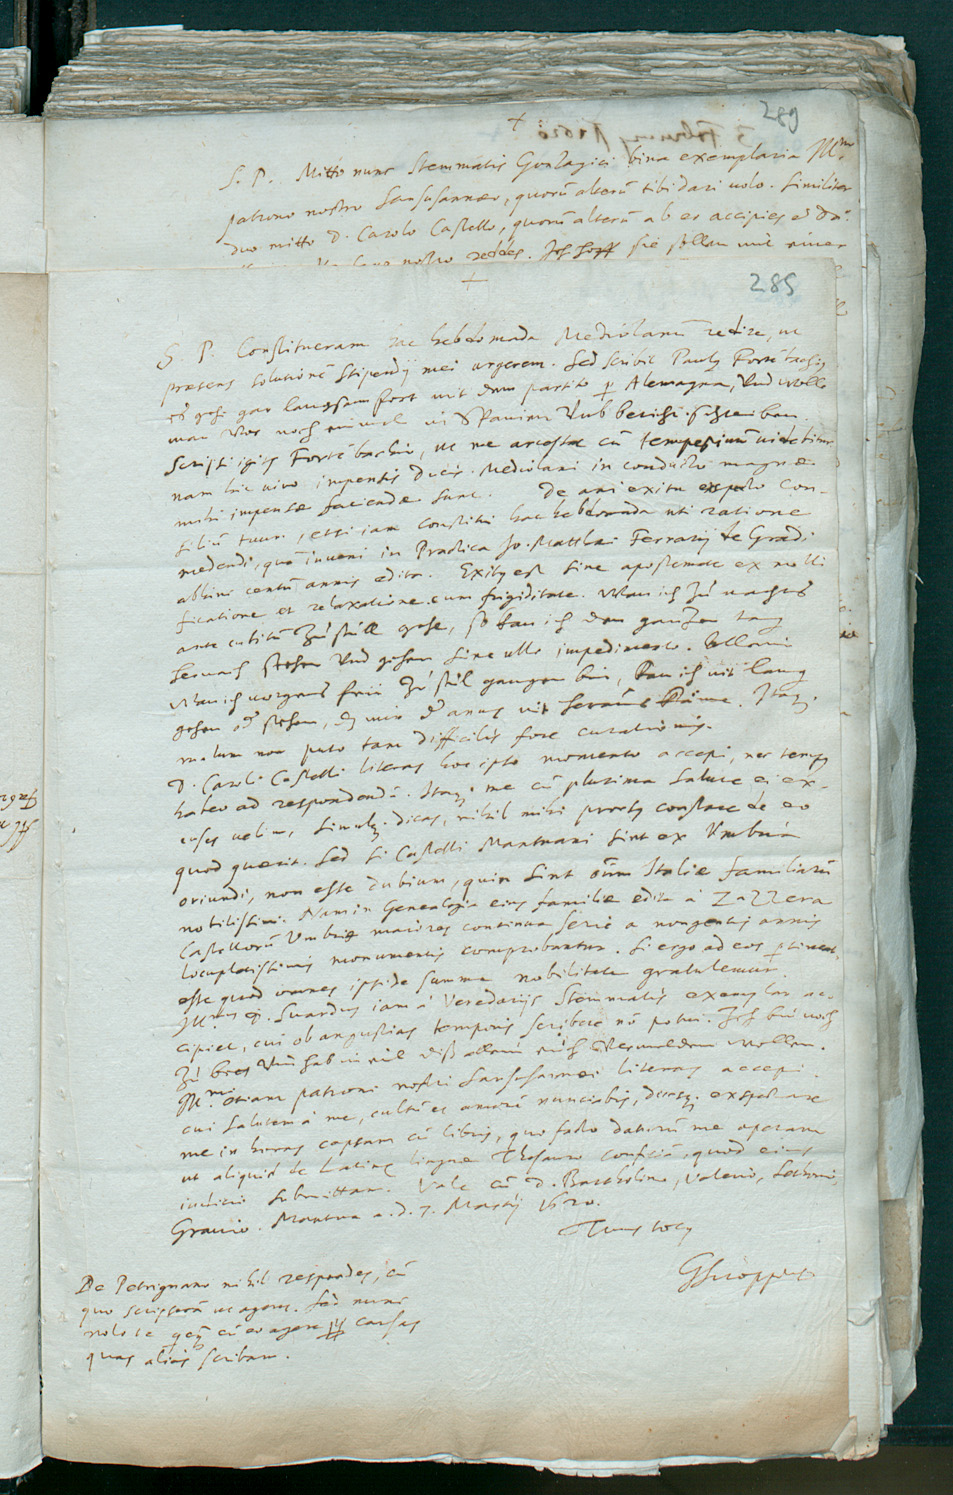 289
+
S. P. Mitto nunc Stemmatis Gonzagici bina exemplaria Ill.mo
patrono nostro Sansusannaeo, quorũ alterũ tibi dari uolo. Similiter
duo mitto D. Carolo Castello, quorũ alterũ ab eo accipies et
nostro reddes. Ich hoff sie sollen mit einer
285
+
S. P. Constitueram hac hebdomada Mediolanũ redire, ut
praesens solutionẽ stipendij mei urgerem. Sed scribit Paulq
es gehe gar langsam fort mit dem partito p Alemagna, Vnd wolle
man Vor noch einmal in Spanien Vmb bericht schreiben.
Scripsi igitur ut me arcessat cũ tempestiuũ uidebitur
nam hic uiuo impensis Ducis. Mediolani in conducto magnae
mihi impensae faciendae sunt. De ani exitu expecto con-
silium tuum, etsi iam constitui hac hebdomada uti ratione
medendi, quã inueni in Practica Jo. Matthaei Ferrarij de Gradi
abhinc centũ annis edita. Exitq est sine apostemate ex molli
ficatione et relaxatione cum frigiditate. Wan ich zu nachts
ante cubitũ zu stull gehe, so kan ich den ganzen tag
hernach stehen Vnd gehen sine ullo impedimento.
Wan ich morgens frü zu stul gangen bin, kan ich nit lang
gehen od stehen, dz mir d anus nit heraus kãme. Itaq
malum non puto tam difficilis fore curationis.
D. Caroli Castelli literas hoc ipso momento accepi, nec tempq
habeo ad respondendũ. Itaq me cũ plurima salute ei ex-
cuses uelim, simulq dicas, nihil mihi prorsq constare de eo
quod querit. Sed si Castelli Mantuani sint ex Vmbria
oriundi, non esse dubium, quin sint oĩm Italiae familiarũ
nobilissimi. Nam in Genealogia eius familiae edita à Zazzera
Castellorũ Vmbriae maiores continua serie a nongentis annis
locupletissimis monumentis comprobantur. Si ergo ad eos ptineat,
esse quod omnes ipsi de summa nobilitate gratulemur.
Ill.mus D. Suardus iam à Veredarijs Stemmatis exemplar ac-
cipiet, cui ob angustias temporis scribere nõ potui. Ich bin noch
zu Vnd hab in eil diß allein euch Vermelden wollen.
Ill.mi etiam patroni nostri Sansusannei literas accepi.
cui salutem à me, cultũ et amorẽ nunciabis, dicesq exspectare
me in horas capsam cũ libris, quo facto daturũ me operam
ut aliquid de Latinae linguae Thesauro conficiã, quod eius
iudicio submittam. Vale cũ D. Bartholino, Valerio,
Mantua a. d. 7. Martij 1620.
Tuus totq
GScioppius
De Petrignano nihil respondes, cũ
quo scripserã ut ageres. Sed nunc
nolo te cũ eo agere causas
quas alias scribam.